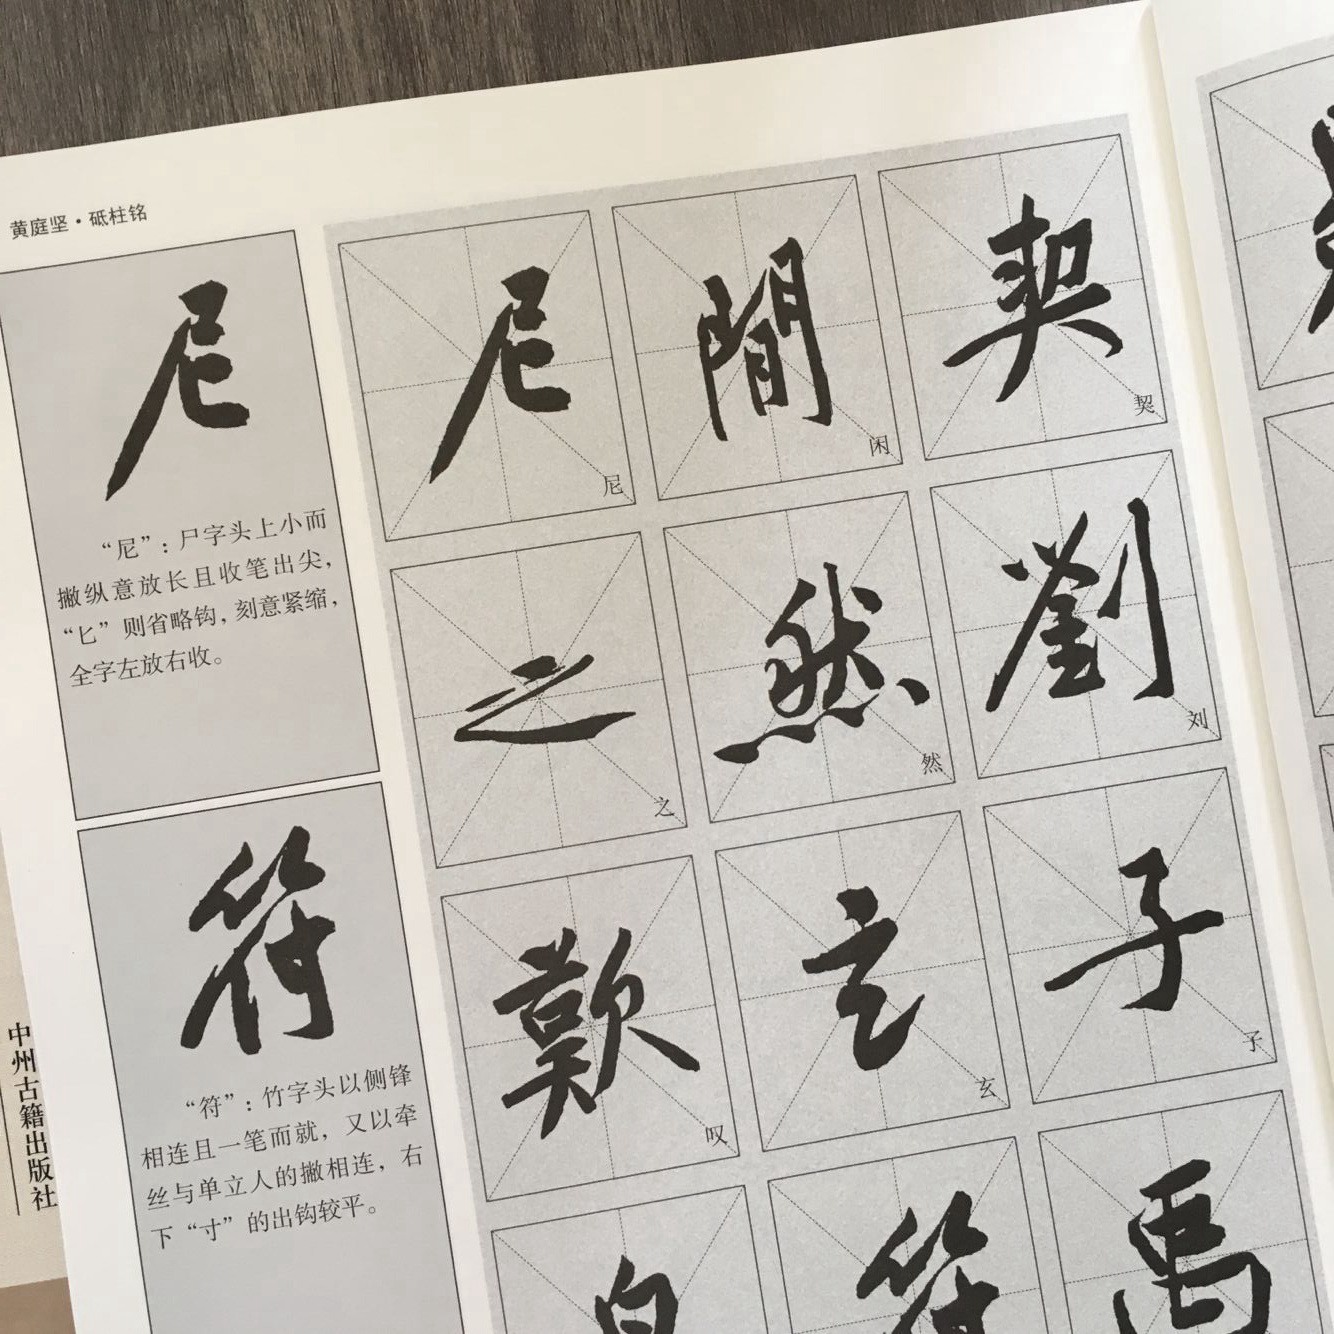 黄庭坚·砥柱铭
尼
“尼”：尸字头上小而
撇纵意放长且收笔出尖，
“匕”则省略钩，刻意紧缩，
全字左放右收。
符
“符”：竹字头以侧锋
相连且一笔而就，又以牵
丝与单立人的撇相连，右
下“寸”的出钩较平。
契
契
劉
刘
子
子
禹
閒
闲
然
然
玄
玄
符
尼
尼
之
之
歎
叹
中州古籍出版社